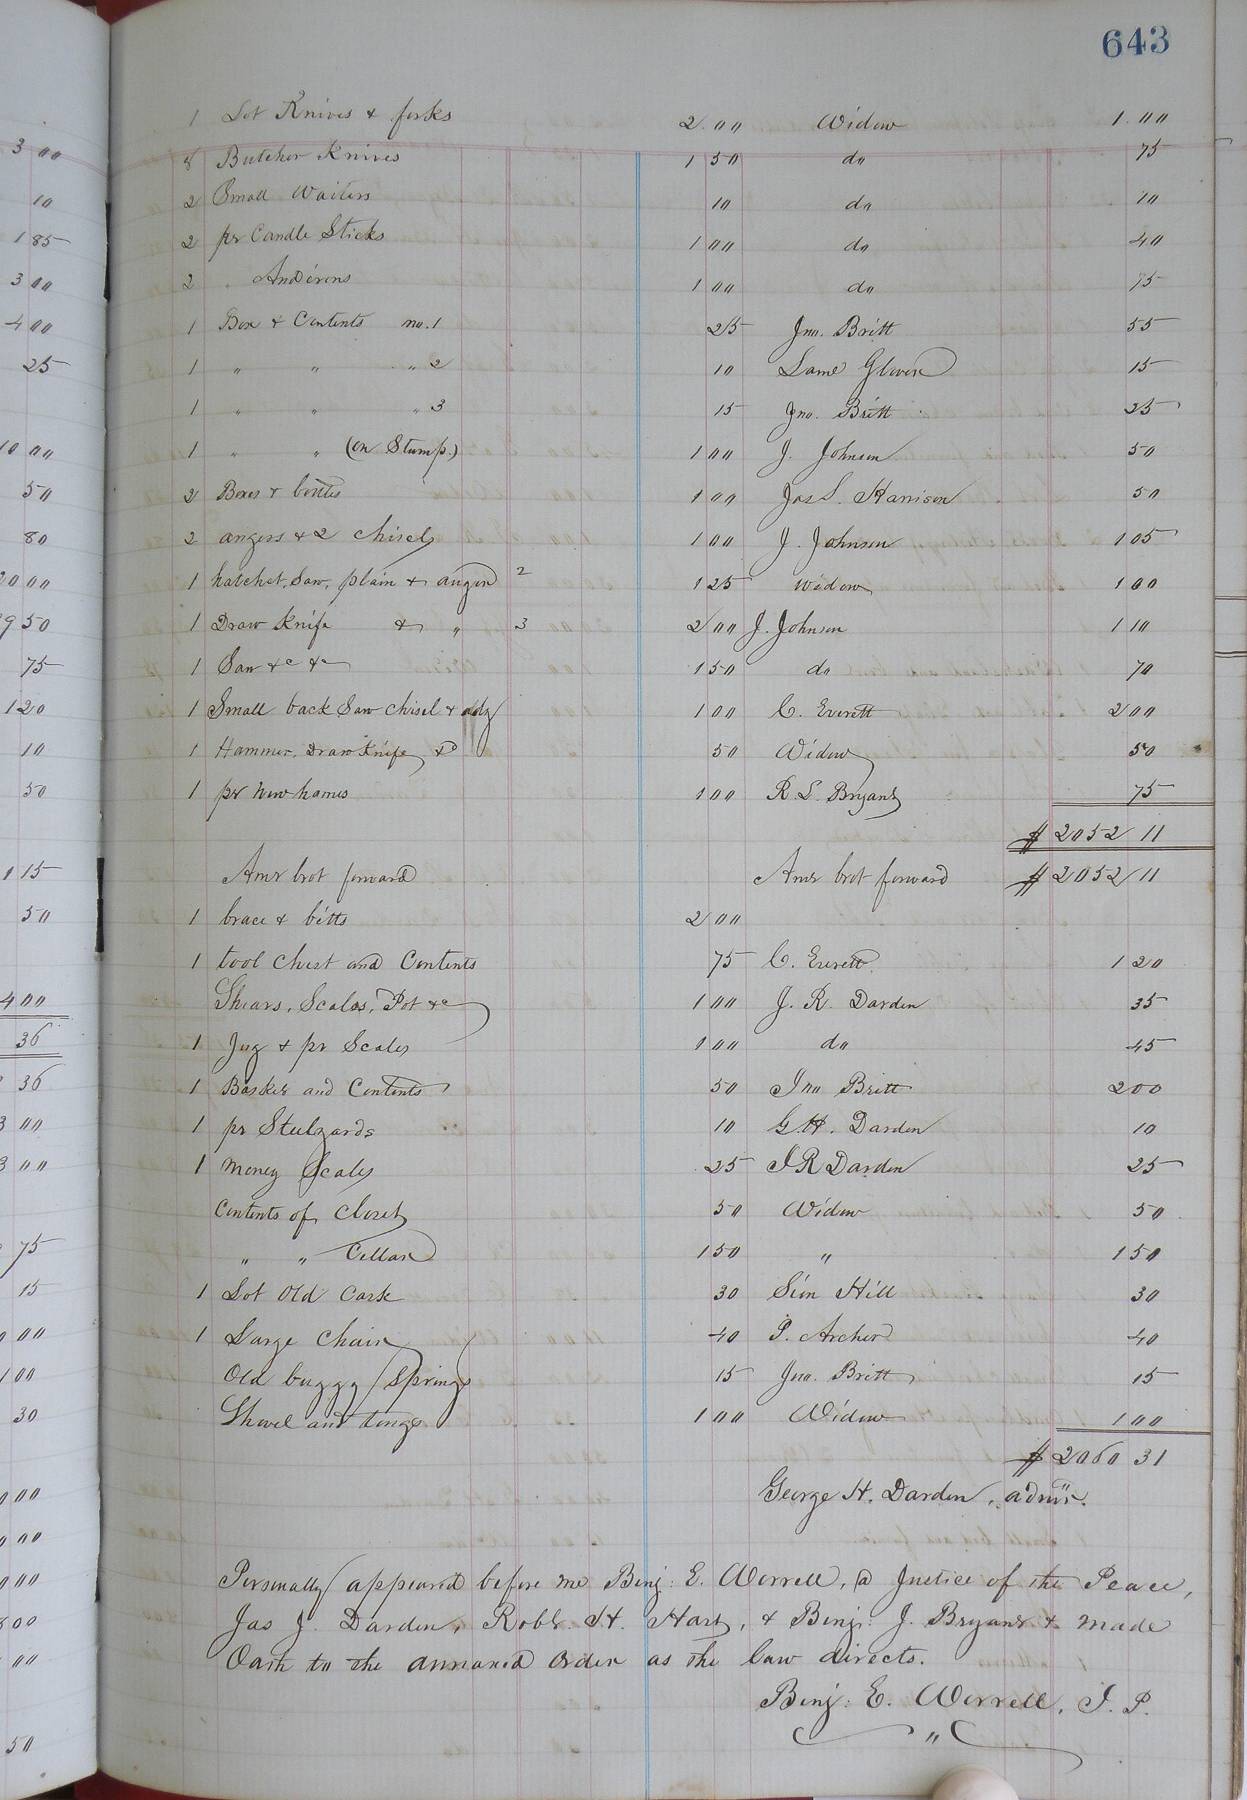 643
1 Lot Knives & forks 2.00 Widow 1.00
8 Butcher Knives 1 50 do 75
2 Small Waiters 10 do 10
2 pr Candle Sticks 1 00 do 40
2 " Andirons 1 00 do 75
1 Box & Contents no. 1 25 Jno. Britt 55
1 " " " 2 10 Saml Glover 15
1 " " " 3 15 Jno. Britt 25
1 " " (on Stump.) 1 00 J. Johnson 50
2 Boxes & bottles 1 00 Jas L. Harrison 50
2 augers & 2 Chisels 1 00 J. Johnson 1 05
1 hatchet, Saw, plain & auger 2 1 25 Widow 1 00
1 Draw Knife & " 3 2 00 J. Johnson 1 10
1 Saw &c &c 1 50 do 70
1 Small back Saw Chisel & adz 1 00 C. Everett 2 00
1 Hammer, Draw Knife &c 50 Widow 50
1 pr New hames 1 00 R. L. Bryant 75
$ 2052 11
Amt brot forward Amt brot forward $ 2052 11
1 brace & bitts 2 00
1 tool Chest and Contents 75 C. Everett 1 20
Shears, Scales, Pot &c 1 00 J. R. Darden 35
1 Jug & pr Scales 1 00 do 45
1 Basket and Contents 50 Jno Britt 2 00
1 pr Steelyards 10 G. H. Darden 10
1 Money Scales 25 J R Darden 25
Contents of Closet 50 Widow 50
" " Cellar 1 50 " 1 50
1 Lot Old Cask 30 Sim Hill 30
1 Large Chair 40 P. Archer 40
Old buggy Springs 15 Jno. Britt 15
Shovel and tongs 1 00 Widow 1 00
$ 2060 31
George H. Darden, admr.
Personally appeared before me Benj: E. Worrell, a Justice of the Peace,
Jas J. Darden, Robt. H. Hart, & Benj: J. Bryant & made
Oath to the annaxed Order as the law directs.
Benj: E. Worrell, J. P.
"
3 00
10
1 85
3 00
4 00
25
10 00
50
80
20 00
9 50
75
1 20
10
50
1 15
50
4 00
36
36
3 00
3 00
75
15
00
1 00
30
00
00
00
00
00
50